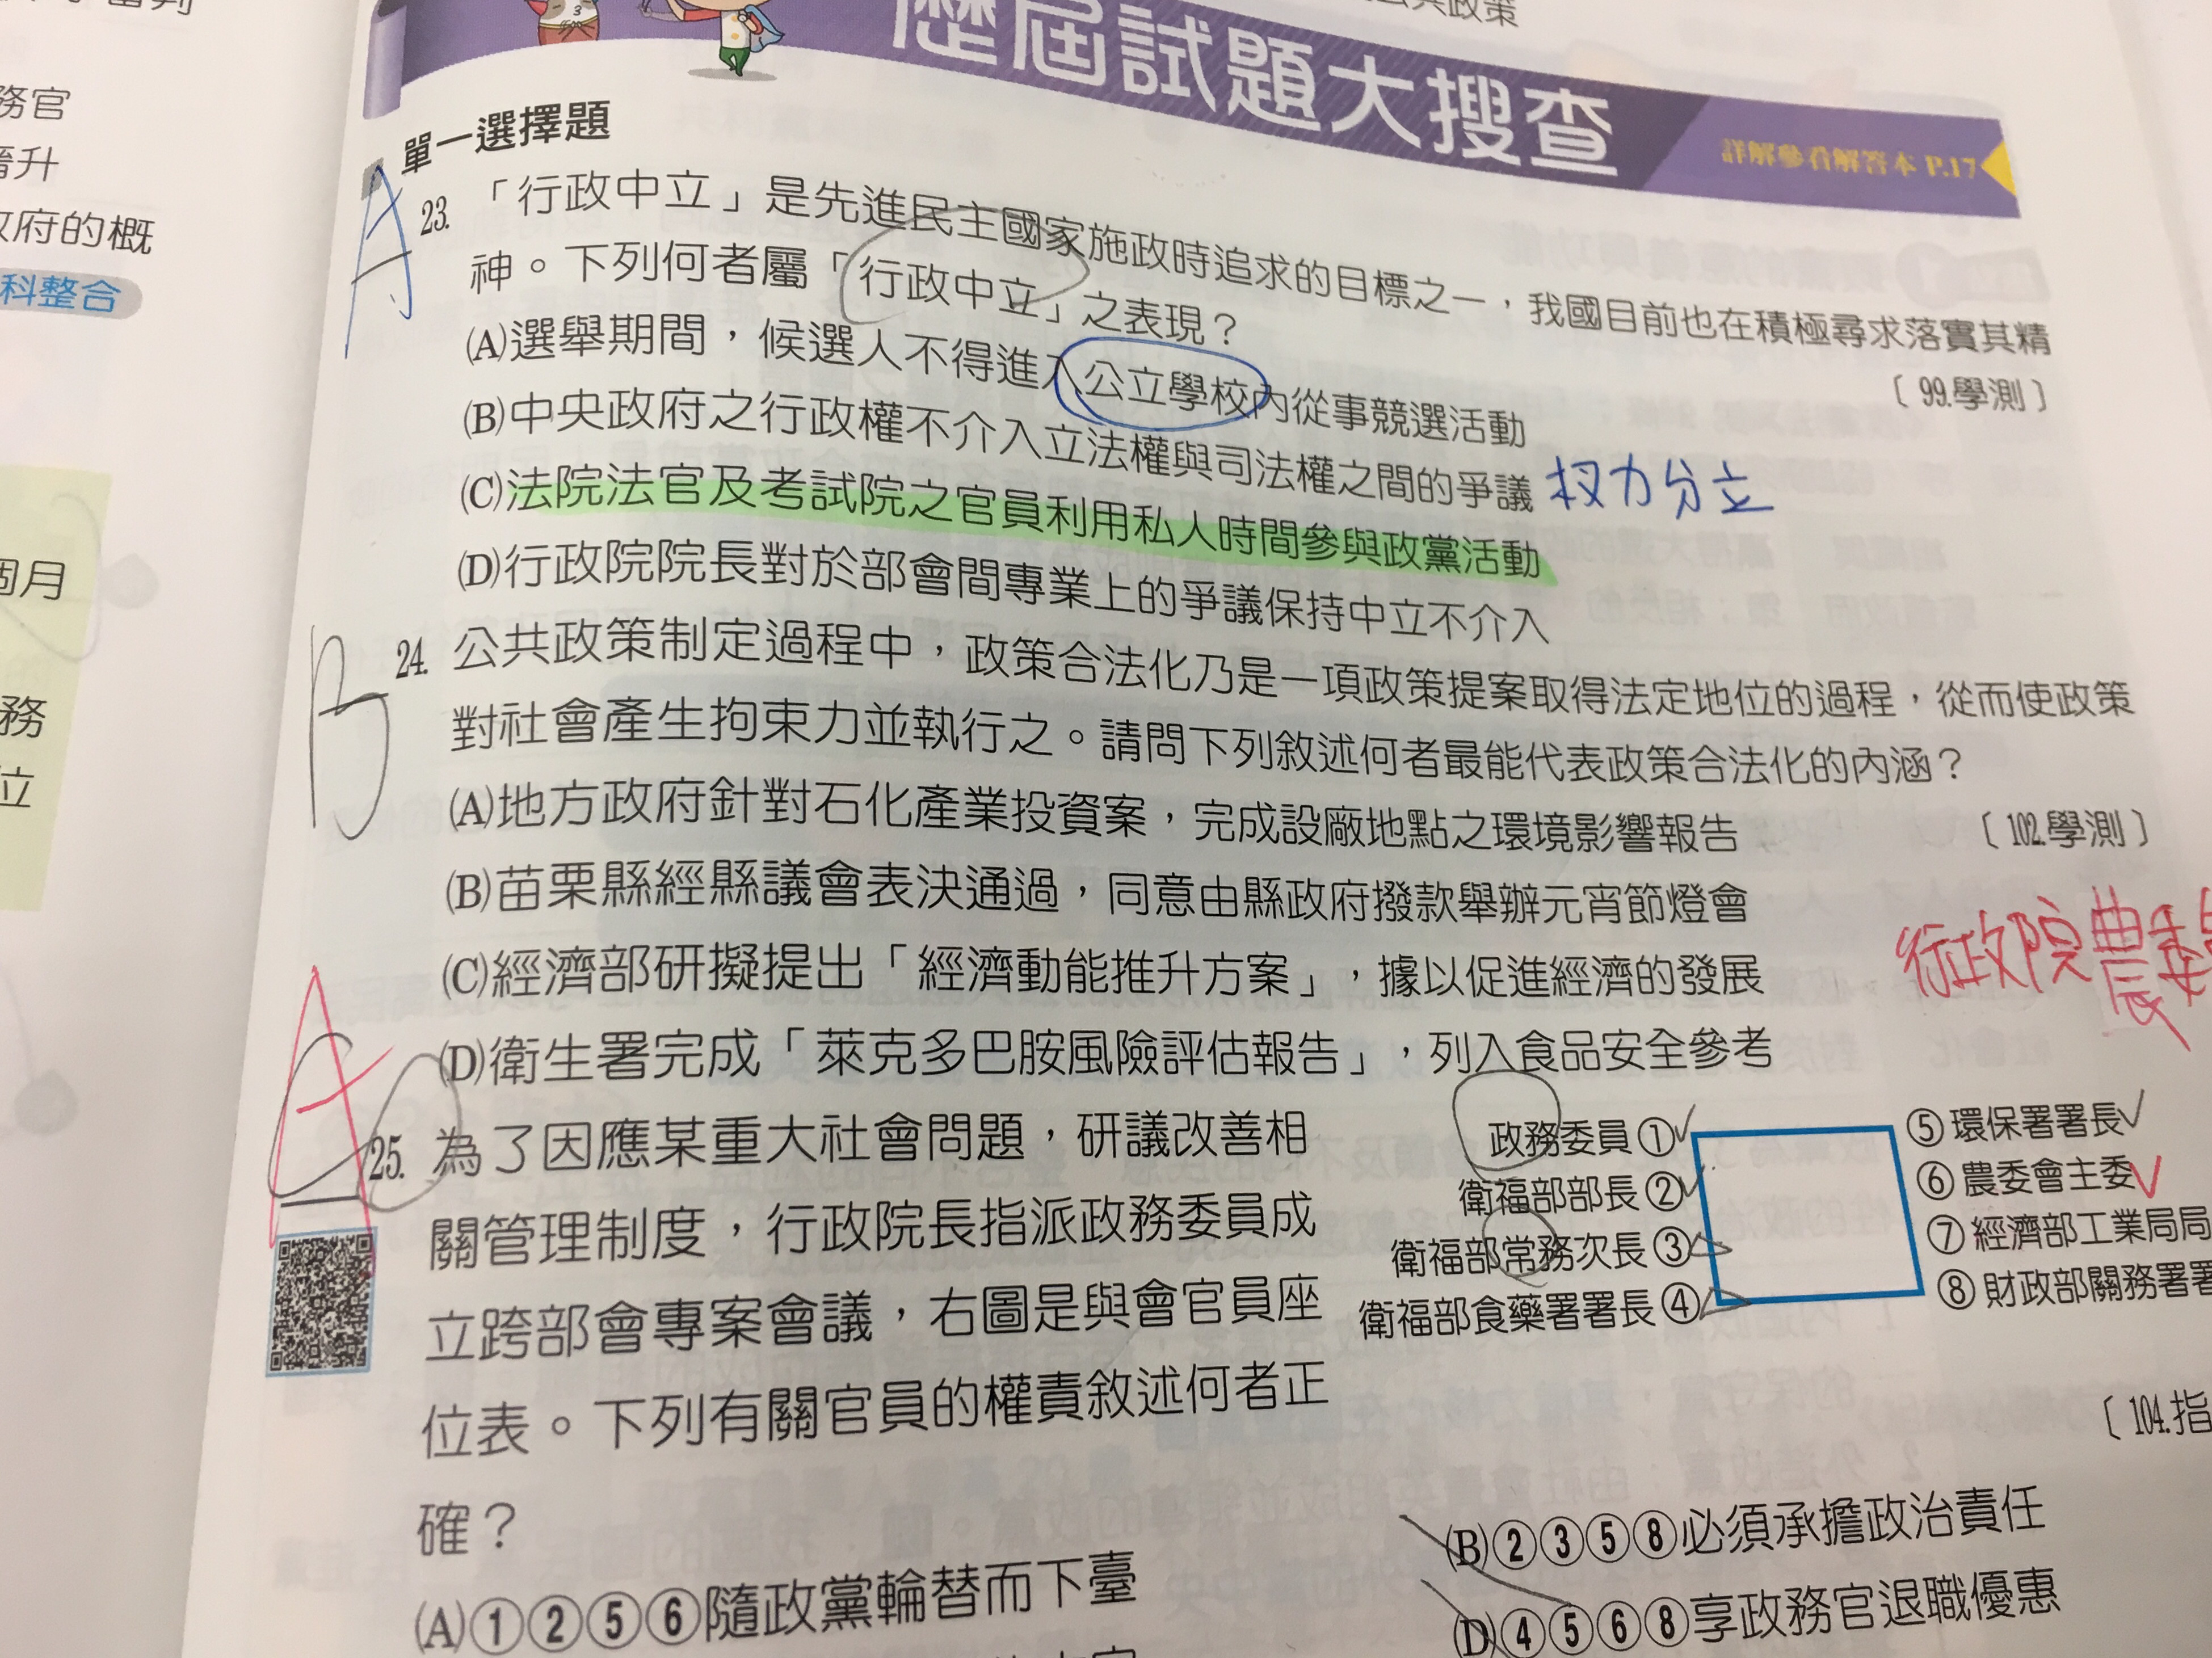 務官
晉升
政府的概
科整合
個月
務
位
公共政策
歷屆試題大搜查
詳解參看解答本 P.17
單一選擇題
A
23.「行政中立」是先進民主國家施政時追求的目標之一，我國目前也在積極尋求落實其精
神。下列何者屬「行政中立」之表現？
〔99.學測〕
(A)選舉期間，候選人不得進入公立學校內從事競選活動
(B)中央政府之行政權不介入立法權與司法權之間的爭議 权力分立
(C)法院法官及考試院之官員利用私人時間參與政黨活動
(D)行政院院長對於部會間專業上的爭議保持中立不介入
B
24.公共政策制定過程中，政策合法化乃是一項政策提案取得法定地位的過程，從而使政策
對社會產生拘束力並執行之。請問下列敘述何者最能代表政策合法化的內涵？
〔102.學測〕
(A)地方政府針對石化產業投資案，完成設廠地點之環境影響報告
(B)苗栗縣經縣議會表決通過，同意由縣政府撥款舉辦元宵節燈會
(C)經濟部研擬提出「經濟動能推升方案」，據以促進經濟的發展
行政院農委
(D)衛生署完成「萊克多巴胺風險評估報告」，列入食品安全參考
A
25.為了因應某重大社會問題，研議改善相
關管理制度，行政院長指派政務委員成
立跨部會專案會議，右圖是與會官員座
位表。下列有關官員的權責敘述何者正
確？
政務委員①
衛福部部長②
衛福部常務次長③
衛福部食藥署署長④
⑤環保署署長
⑥農委會主委
⑦經濟部工業局局
⑧財政部關務署署
〔104.指
(A)①②⑤⑥隨政黨輪替而下臺
(B)②③⑤⑧必須承擔政治責任
(D)④⑤⑥⑧享政務官退職優惠